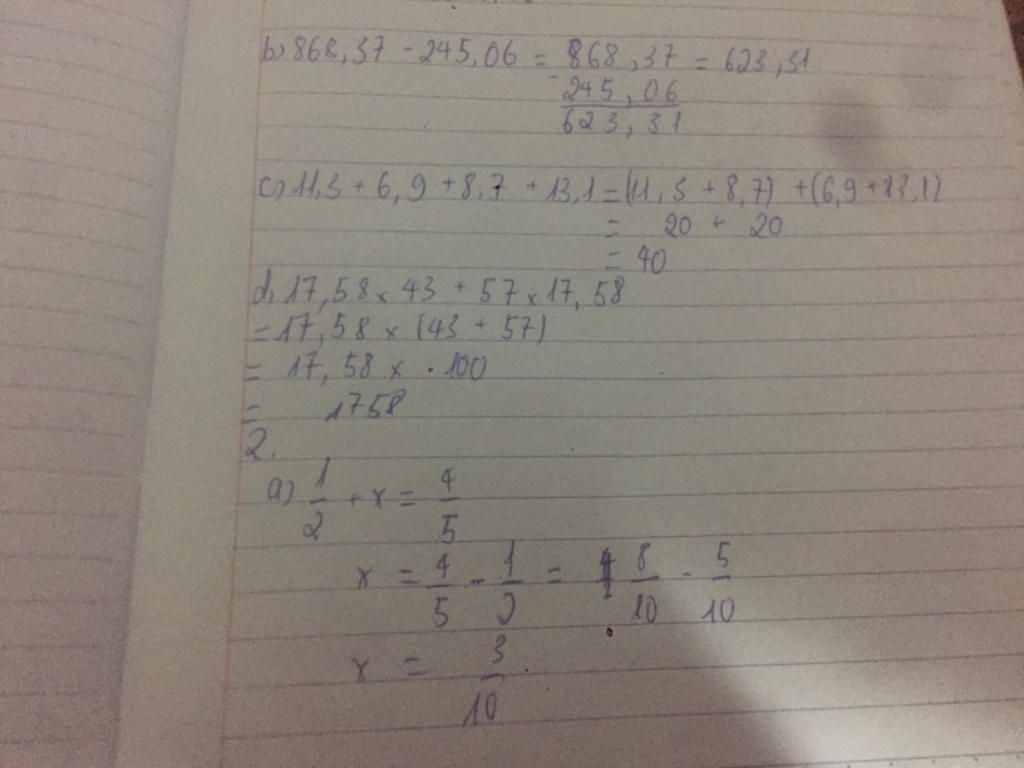 b) 868,37 - 245,06 = 868,37 = 623,31
- 245,06
623,31
c) 11,3 + 6,9 + 8,7 + 13,1 = (11,3 + 8,7) + (6,9 + 13,1)
= 20 + 20
= 40
d, 17,58 x 43 + 57 x 17,58
= 17,58 x (43 + 57)
= 17,58 x 100
= 1758
2.
a) 1/2 + x = 4/5
x = 4/5 - 1/2 = 8/10 - 5/10
x = 3/10.